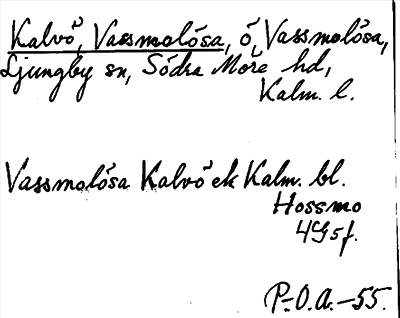 Kalvö, Vassmolösa, ö, Vassmolösa,
Ljungby sn, Södra Möre hd,
Kalm. l.
Vassmolösa Kalvö ek Kalm. bl.
Hossmo
4G5f.
P.O.A.-55.